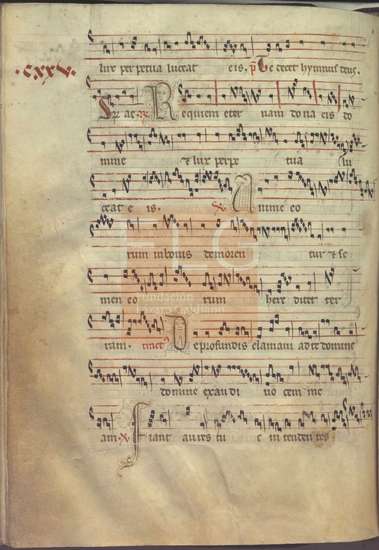 lux perpetua luceat eis. p̄ Te decet hymnus deus.
.cxxv.
R equiem eter nam dona eis do
mine & lux perpe tua lu
ceat e is. A nime eo
rum in bonis demoren tur & se
men eo rum here ditet ter
ram. tract̄ D e profundis clamavi ad te domine
domine exaudi vo cem me
am. F iant aures tu e in tenden tes
fundación